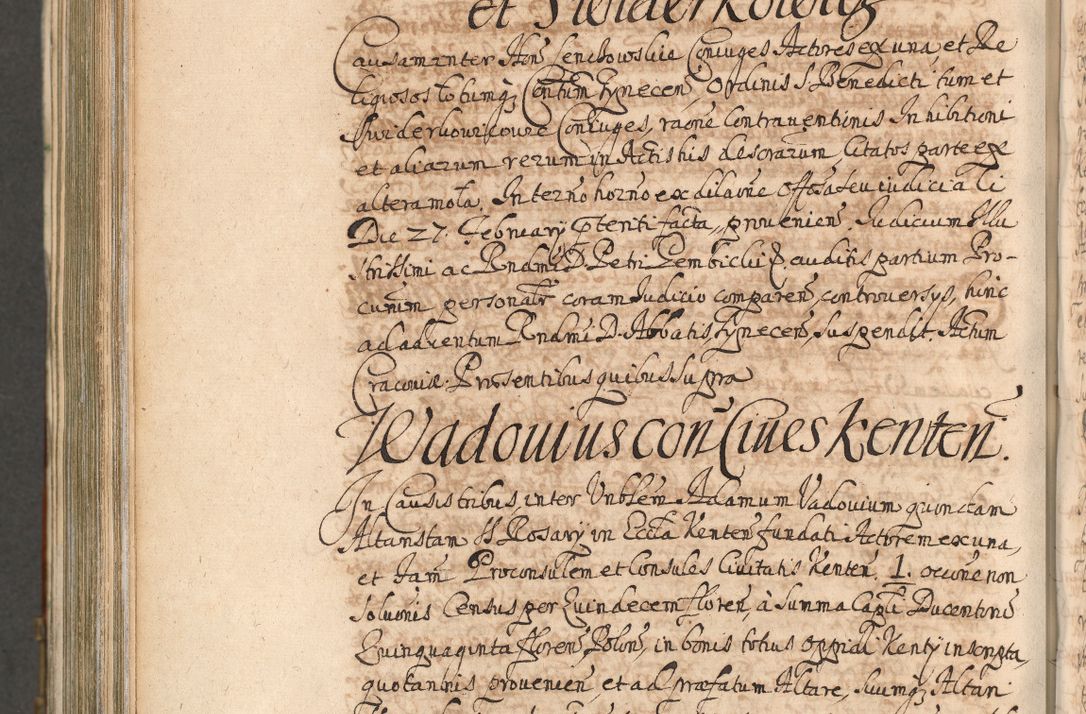 et Swiderkowicz
Causam inter Hon̄ Lenchowskie Coniuges Actores ex una, et Re
ligiosos totumq; Contum Tynecen̄ Ordinis S. Benedicti tum et
Swiderkovicove Coniuges, raōne contraventionis Inhibitioni
et aliarum rerum in Actis his descrarum, citatos parte ex
altera mota. In tern̄o horno ex dilaōne
Die 27. February facta, provenien̄. Judicium Illu
strissimi ac Rndmi D. Petri Gembicki auditis partium Pro-
curum personalr̄ coram Judicio comparen̄, controversys, hinc
ad adventum Rndmi D. Abbatis Tynecen̄, suspendit. Actum
Cracoviæ. Præsentibus quibus supra
Wadovius con̄ Cives kenten̄.
In Causis tribus, inter Vnblēm Adamum Vadovium quondam
Altaristam SS. Rosary in Eccl̄a Kenten̄ fundati Actorem ex una,
et Fam̄ Proconsulem et Consules Civitatis Kenten̄. 1. occōne non
soluōnis Census per Quindecem floren̄, à summa Capl̄i Ducentorū
Quinquaginta floren̄ Polon̄, in bonis totius oppidi Kenty inscripta,
quotannis provenien̄, et ad præfatum Altare, suumq; Altari